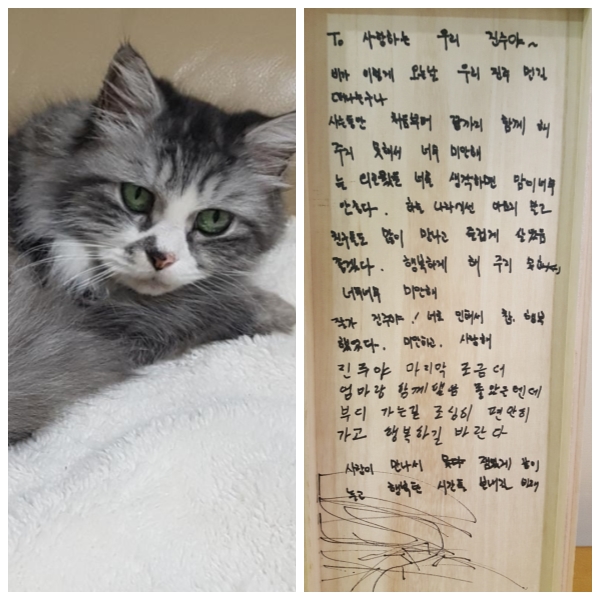 To 사랑하는 우리 진주야~
비가 이렇게 오는날 우리 진주 먼길
떠나는구나
처음부터 끝까지 함께 해
주지 못해서 너무 미안해
늘 외로웠을 너를 생각하면 맘이 너무
안좋다. 하늘 나라에선 아프지 말고
친구들도 많이 만나고 즐겁게 살았음
좋겠다. 행복하게 해 주지 못해서
너무너무 미안해
잘가 진주야! 너로 인해서 참 행복
했었다. 미안하고. 사랑해
진주야 마지막 조금 더
엄마랑 함께 했음 좋았을텐데
부디 가는길 조심히 편안히
가고 행복하길 바란다
만나서 못다 같이
놀고 행복한 시간을 보내길